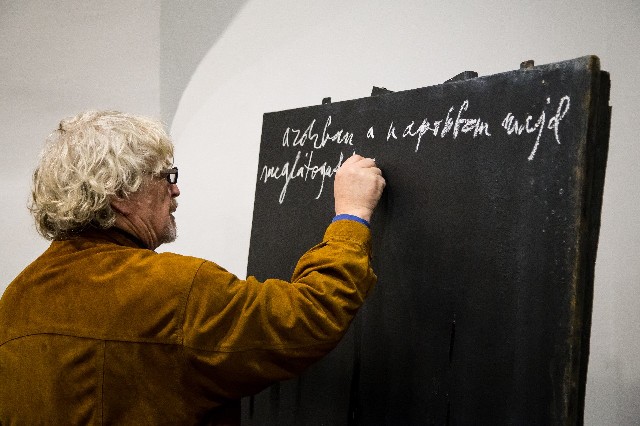 azokban a napokban majd
meglátogat